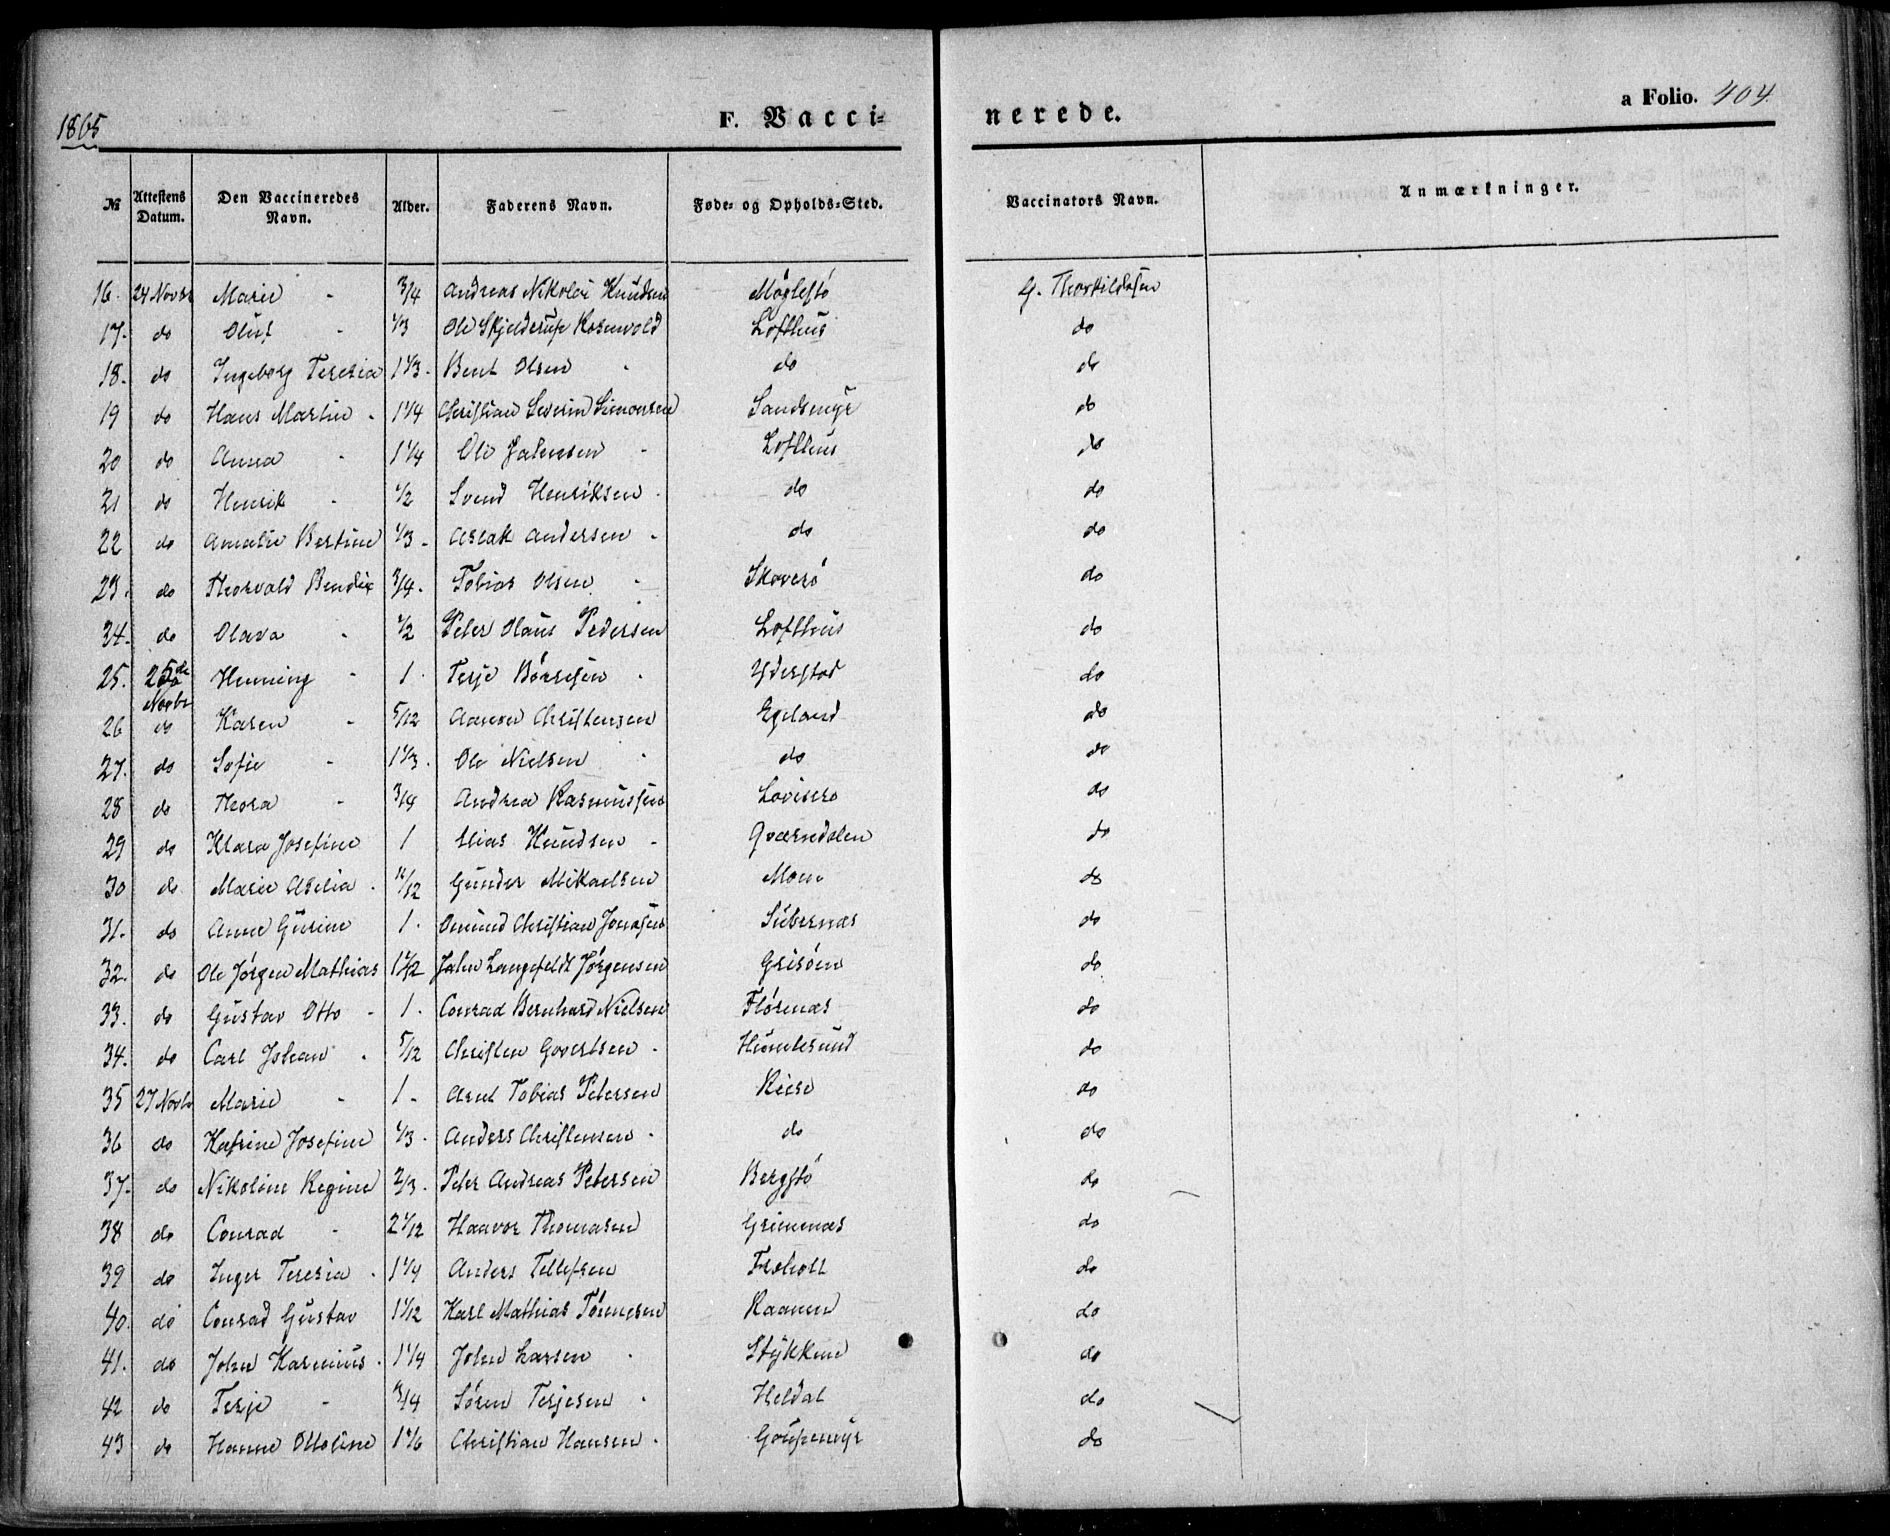 1865
F. Vaccinerede.
a Folio. 404.
№ | Attestens Datum. | Den Vaccineredes Navn. | Alder. | Faderens Navn. | Føde- og Opholds-Sted. | Vaccinators Navn. | Anmærkninger.
16. | 24 Novbr | Marie | 3/4 | Andreas Nikolai Knudsen | Møglestø | G. Thorkildsen
17. | do | Oluf | 1/3 | Ole Skjelderup Rosenvold | Lofthus | do
18. | do | Ingeborg Teresia | 1 1/3. | Bent Olsen | do | do
19 | do | Hans Martin | 1 1/4 | Christian Severin Simonsen | Sandsmyr | do
20 | do | Anna | 1 1/4 | Ole Jahnsen | Lofthus | do
21 | do | Henrik | 1/2 | Svend Henriksen | do | do
22 | do | Amalie Bertine | 1/3. | Aslak Andersen | do | do
23. | do | Thorvald Bendix | 3/4. | Tobias Olsen | Skoverø | do
34. | do | Olava | 1/2 | Peter Olaus Pedersen | Lofthus | do
25. | 25de Novbr | Henning | 1. | Terje Børresen | Yderstad | do
26 | do | Karen | 5/12 | Aanon Christensen | Egeland | do
27. | do | Sofie | 1 1/3. | Ole Nielsen | do | do
28 | do | Thora | 3/4 | Andrea Rasmussen | Lovisero | do
29 | do | Klara Josefine | 1 | Elias Knudsen | Qværndalen | do
30 | do | Marie Aselia | 11/12 | Gunder Mikaelsen | Moen | do
31. | do | Anne Gurine | 1. | Omund Christian Jonasen | | do
32. | do | Ole Jørgen Mathias | | Jahn Langfeldt Jørgensen | Grisøen | do
33. | do | Gustav Otto | 1. | Conrad Bernhard Nielsen | Flørenæs | do
34. | do | Carl Johan | 5/12 | Christen Govertsen | Humlesund | do
35 | 27 Novbr | Marie | 1. | Arnt Tobias Petersen | | do
36 | do | Katrine Josefine | 1/3. | Anders Christensen | do | do
37. | do | Nikoline Regine | 2/3. | Peter Andreas Petersen | Bergstø | do
38 | do | Conrad | 2 1/12 | Haavor Thomasen | Grimenæs | do
39 | do | Inger Teresia | 1 1/4 | Anders Tellefsen | Froholt | do
40. | do | Conrad Gustav | 1 1/12 | Karl Mathias Tønnesen | Raanen | do
41. | do | John Karenius | 1 1/4 | John Larsen | Stykkene | do
42 | do | Terje | 3/4 | Søren Terjesen | Heldal | do
43 | do | Hanne Ottoline | 1 1/6 | Christian Hansen | | do